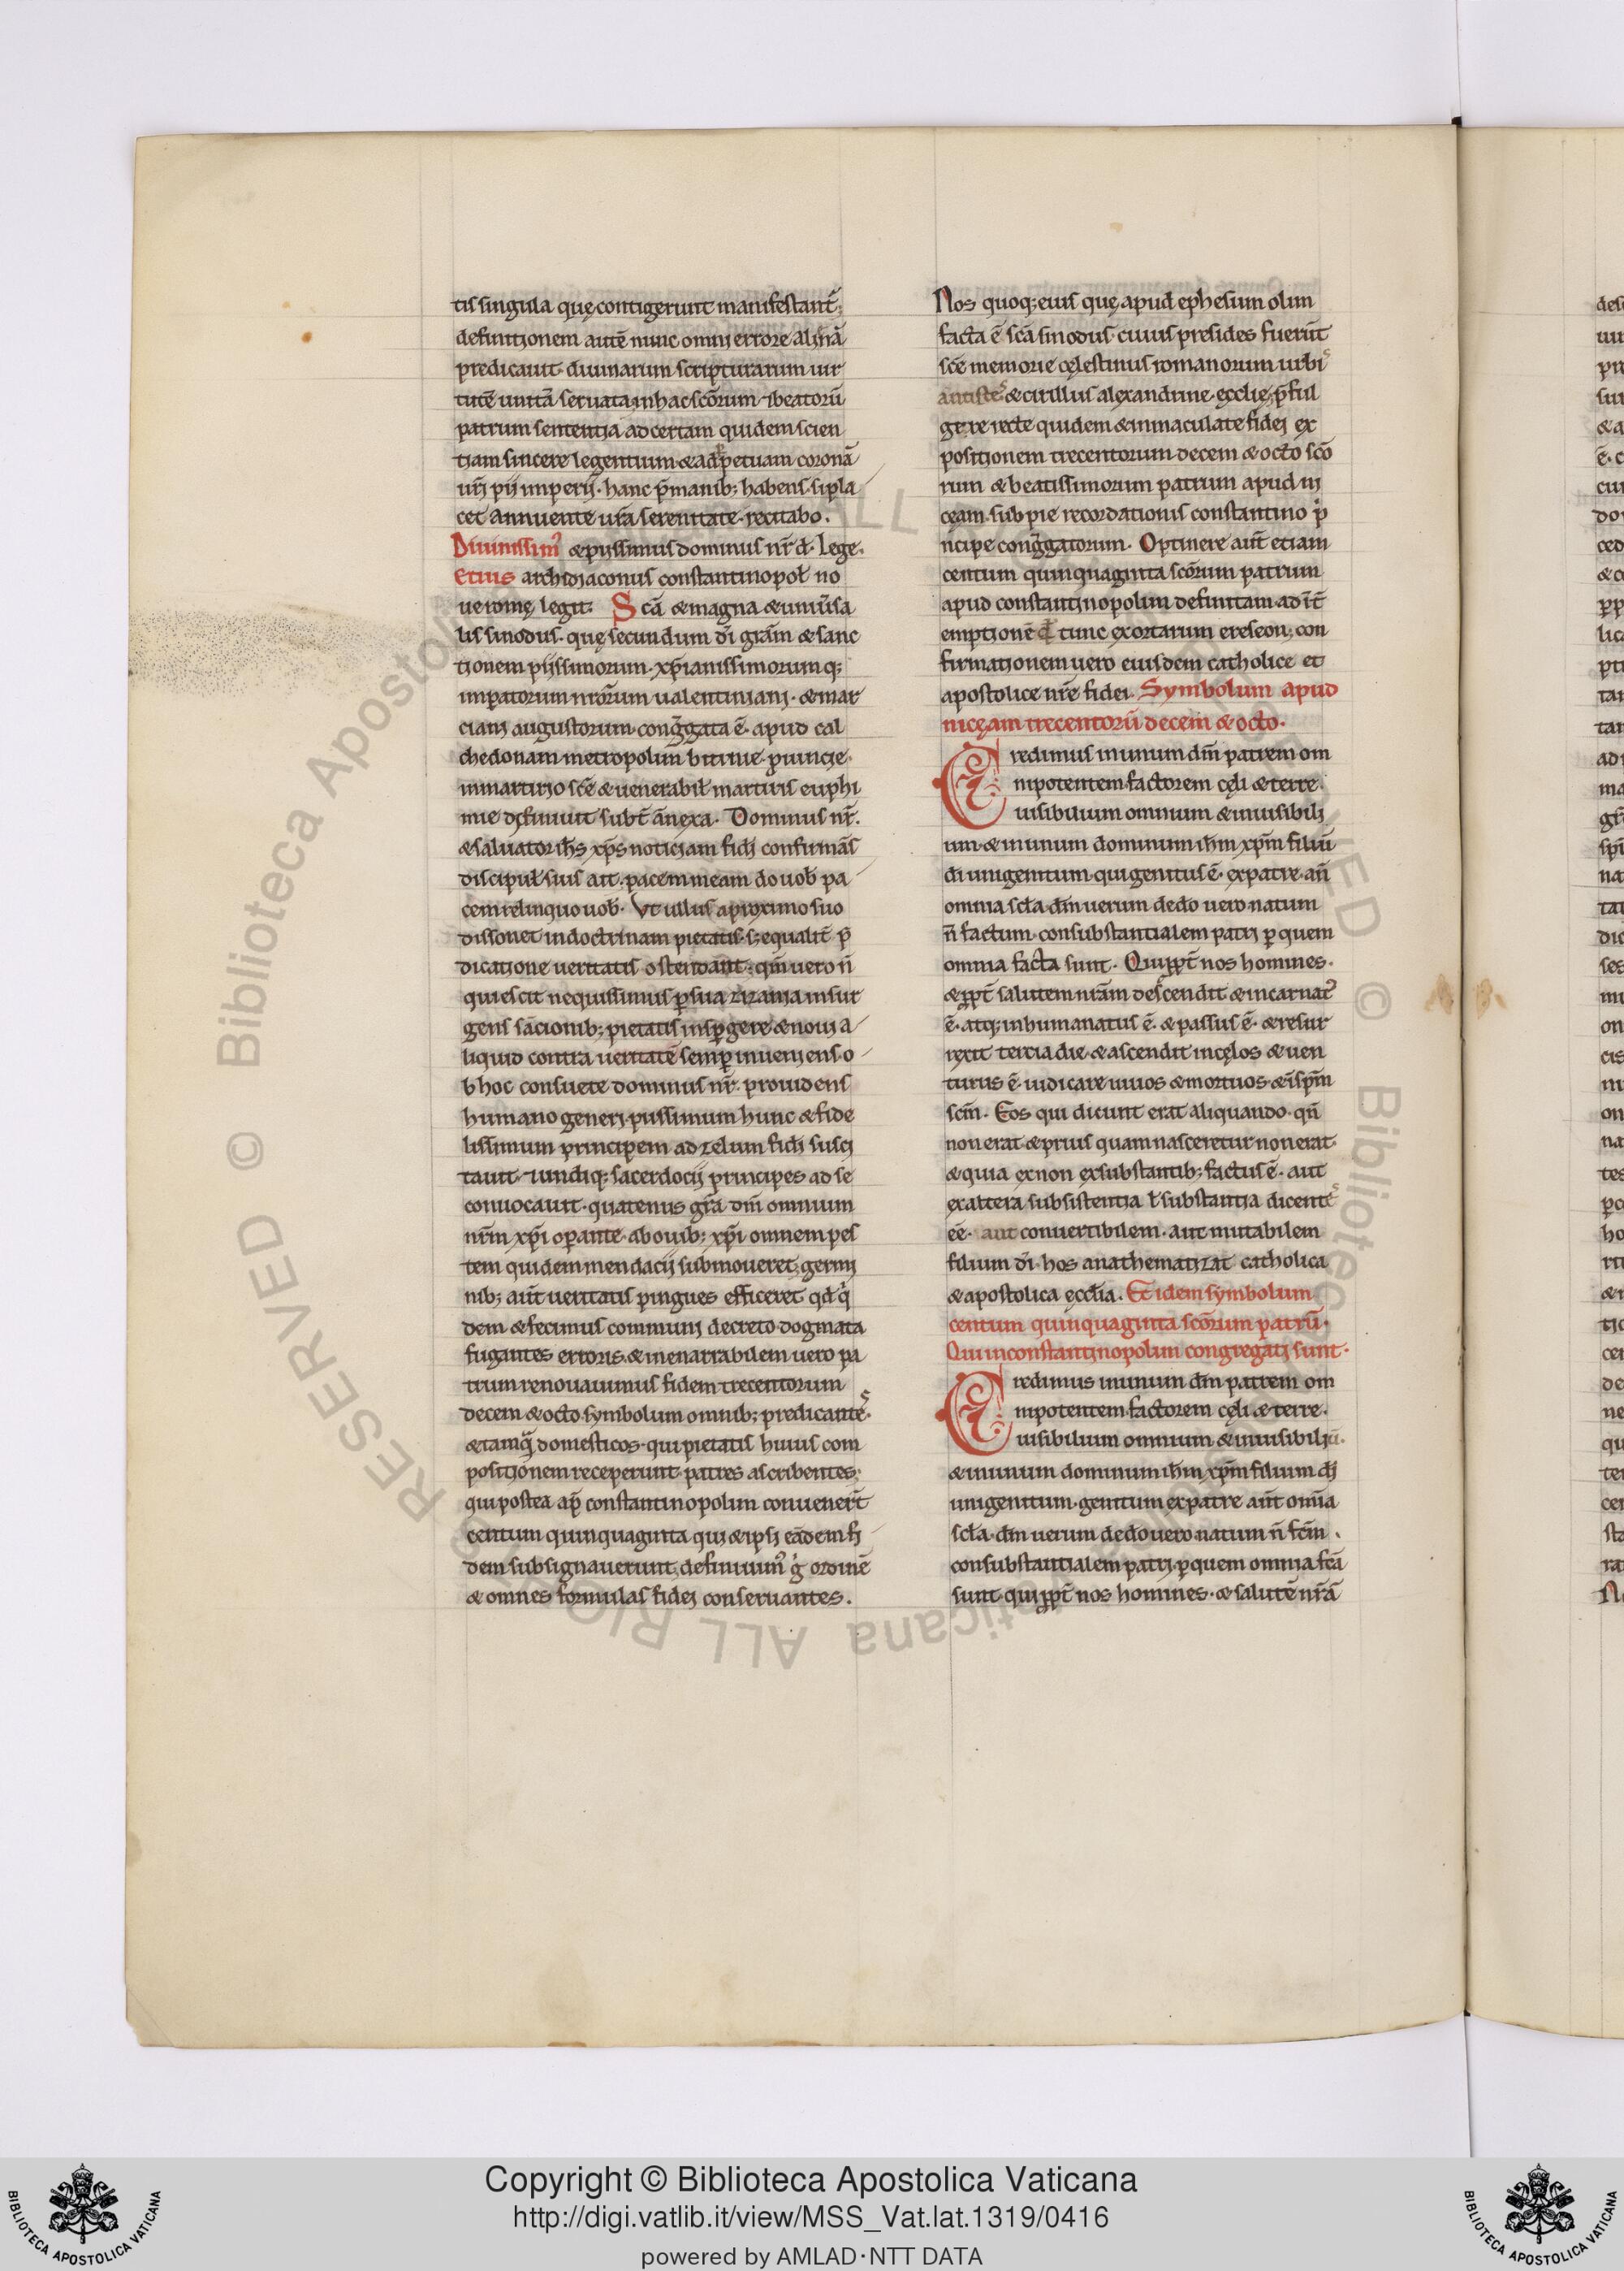 tis singula quę contigerunt manifestant̄;
definitionem autē nunc omni errore alienā
predicauit diuinarum scripturarum uir
tutē unitā seruata in hac sc̄orum ⁊ beatorū
patrum sententia ad certam quidem scien
tiam sincere legentium & ad ꝑpetuam coronā
ur̄i pii imperii. hanc p̄ manib; habens. si pla
cet annuente ur̄a serenitate. recitabo.
Diuinissimꝰ & piissimus dominus nr̄ d̄. Lege.
Etius archidiaconus constantinopol̄ no
ue romę legit. Scā & magna & uniūsa
lis sinodus. quę secundum dī grām & sanc
tionem piissimorum. xp̄ianissimorumq;
imꝑatorum nr̄orum ualentiniani. & mar
ciani augustorum congr̄gata ē. apud cal
chedonam metropolim bitinie ꝓuincie.
in martirio scē & uenerabil̄ martiris euphi
mie definiuit subt̄ ānexa. Dominus nr̄.
& saluator ih̄s xp̄s noticiam fidi confirmās
discipul̄ suis ait. pacem meam do uob̄ pa
cem relinquo uob̄. Vt ullus a proximo suo
dissonet in doctrinam pietatis. s; equalit̄ p̄
dicatione ueritatis ostendant. qm̄ uero n̄
quiescit nequissimus ꝑ sua zizania insur
gens sācionib; pietatis inspgere & noui a
liquid contra ueritatē semꝑ inueniens. o
b hoc consuete dominus nr̄. prouidens
humano generi. piissimum hunc & fide
lissimum principem ad zelum fidi susci
tauit. ⁊ undiq; sacerdocii principes ad se
conuocauit. quatenus gr̄a dn̄i omnium
nr̄m xp̄i oꝑante. ab ouib; xp̄i omnem pes
tem quidem mendacii submoueret, germi
nib; aūt ueritatis pingues efficeret qd̄ q̄
dem & fecimus communi decreto dogmata
fugantes erroris. & inenarrabilem uero pa
trum renouauimus fidem trecentorum
decem & octo symbolum omnib; predicantes.
& tamq̄ domesticos. qui pietatis huius com
positionem receperunt. patres ascribentes.
qui postea ap̄ constantinopolim conuener̄t
centum quinquaginta qui & ipsi eādem fi
dem subsignauerunt, definiuimꝰ g̊ ordinē
& omnes formulas fidei conseruantes.
Nos quoq; eius quę apud ephesum olim
facta ē scā sinodus. cuius presides fuer̄t
scē memorie cęlestinus romanorum urbis
antistes & cirillus alexandrine ęcclię, p̄ful
gere recte quidem & inmaculate fidei ex
positionem trecentorum decem & octo scō
rum & beatissimorum patrum apud ni
ceam. sub pie recordationis constantino p̄
ncipe congr̄gatorum. Optinere aūt etiam
centum quinquaginta scōrum patrum
apud constantinopolim definitam ad int̄
emptionē tunc exortarum ereseon; con
firmationem uero eiusdem catholice et
apostolice nr̄e fidei. Symbolum apud
nicęam trecentorū decem & octo.
Credimus in unum dm̄ patrem om
nipotentem. factorem cęli & terre.
uisibilium omnium & inuisibili
um & in unum dominum ih̄m xp̄m filiū
di unigenitum. qui genitus ē. ex patre. an̄
omnia scl̄a. dm̄ uerum de dō uero. natum
n̄ factum. consubstantialem patri ꝑ quem
omnia facta sunt. Qui ꝓpt̄ nos homines.
& ꝓpt̄ salutem nr̄am descendit & incarnatꝰ
ē. atq; inhumanatus ē. & passus ē. & resur
rexit tercia die. & ascendit in cęlos & uen
turus ē iudicare uiuos & mortuos. & i sp̄m
scm̄. Eos qui dicunt erat aliquando. qn̄
non erat & prius quam nasceretur non erat.
& quia ex non exsubstantib; factus ē. aut
ex altera subsistentia l̄ substantia dicentes
eē. aut conuertibilem. aut mutabilem
filium dī. hos anathematizat catholica
& apostolica ęccl̄ia. Et idem symbolum
centum quinquaginta scōrum patrū.
Qui in constantinopolim congregati sunt.
Credimus in unum dm̄ patrem om
nipotentem. factorem cęli & terre.
uisibilium omnium & inuisibiliū.
& in unum dominum ih̄m xp̄m filium di
unigenitum. genitum ex patre aūt omīa
scl̄a. dm̄ uerum de dō uero. natum n̄ fc̄m.
consubstantialem patri. ꝑ quem omnia fcā
sunt. qui ꝓpt̄ nos homines. & salutē nr̄ā
© Biblioteca Apostolica Vaticana ALL RIGHTS RESERVED
Copyright © Biblioteca Apostolica Vaticana
http://digi.vatlib.it/view/MSS_Vat.lat.1319/0416
powered by AMLAD·NTT DATA
BIBLIOTECA APOSTOLICA VATICANA
BIBLIOTECA APOSTOLICA VATICANA